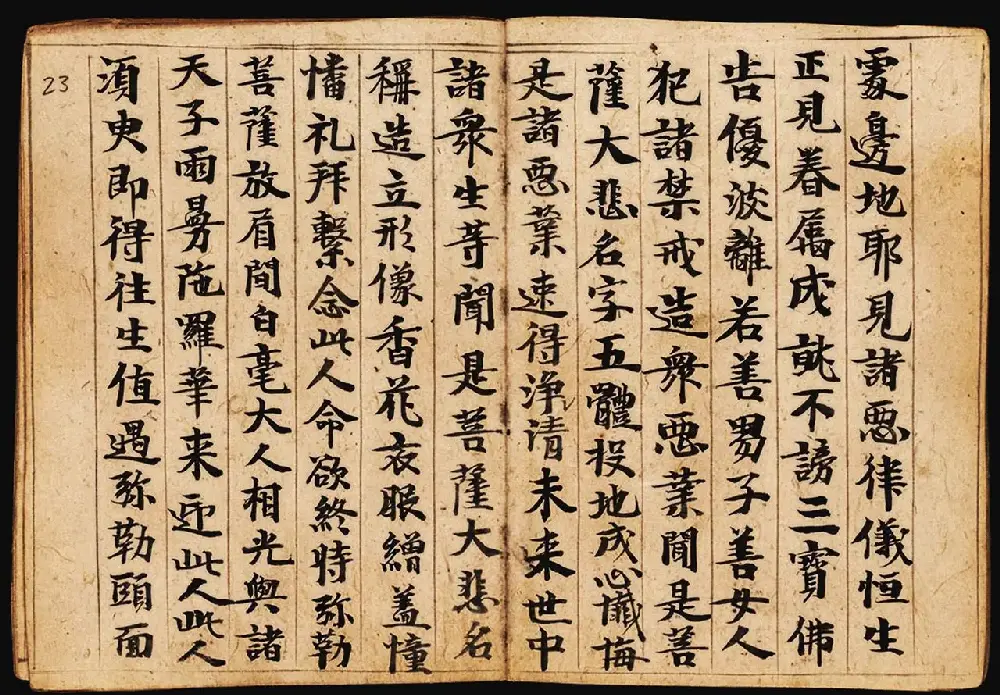 處邊地耶見諸惡律儀恒生
正見眷屬成就不謗三寶佛
告優波離若善男子善女人
犯諸禁戒造衆惡業聞是菩
薩大悲名字五體投地成心懺悔
是諸惡業速得淨清未来世中
諸衆生等聞是菩薩大悲名
稱造立形像香花衣服繒蓋幢
幡礼拜繫念此人命欲終時弥勒
菩薩放眉間白毫大人相光與諸
天子雨曼陁羅華来迎此人此人
湏臾即得往生值遇弥勒頭面
23